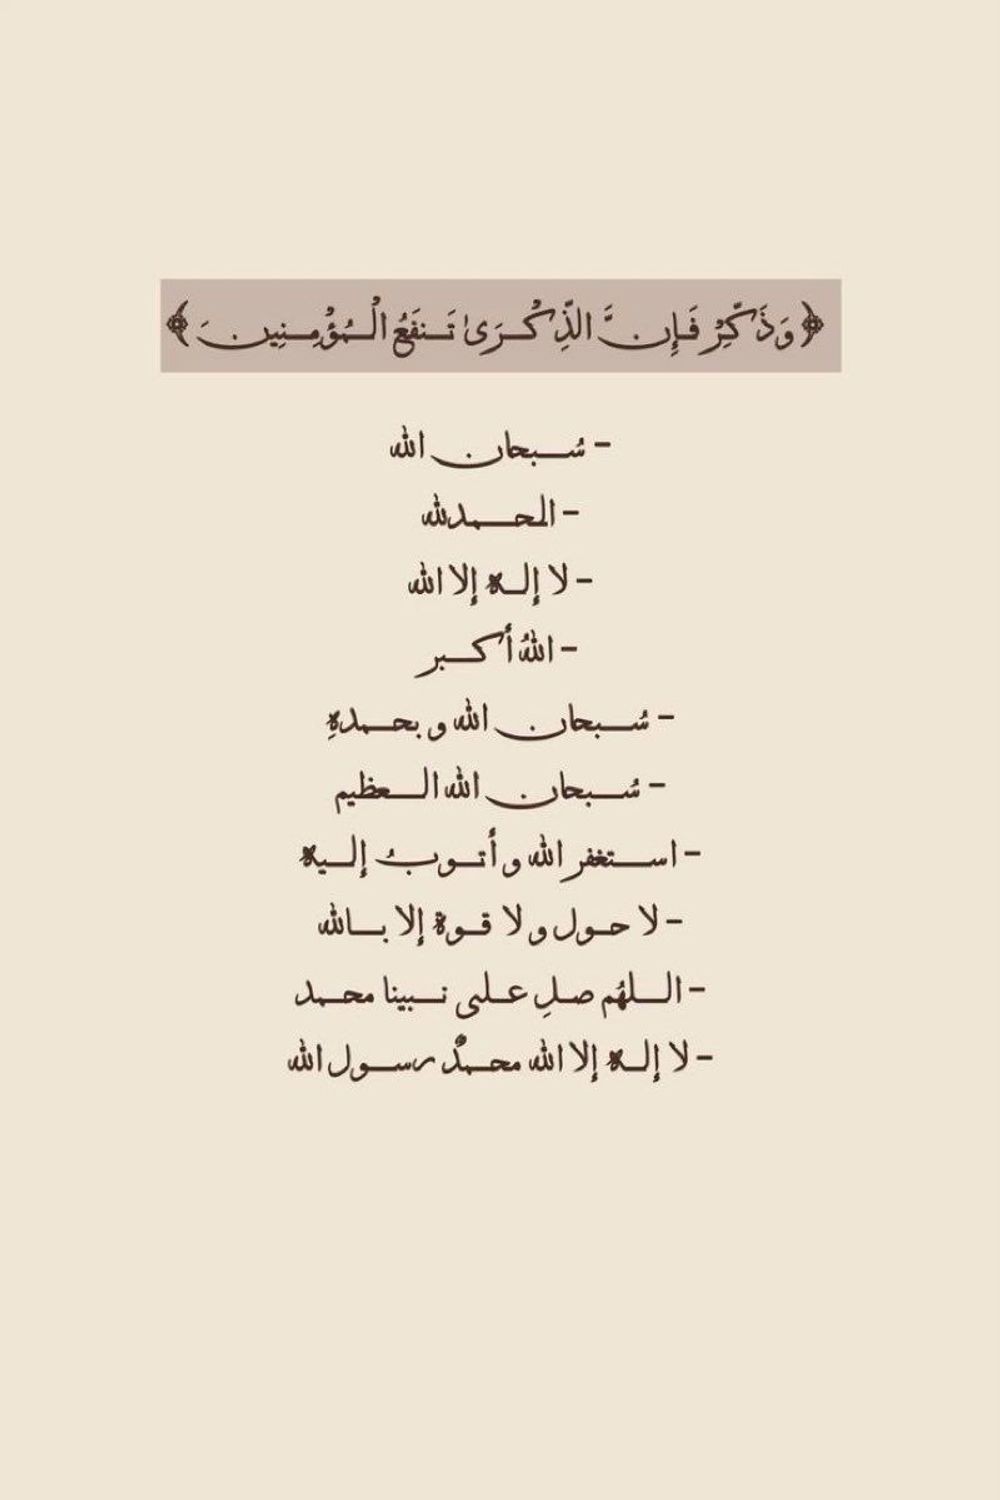 ﴿وَذَكِّرْ فَإِنَّ الذِّكْرَىٰ تَنفَعُ الْمُؤْمِنِينَ﴾
- سُبحان الله
- الحمدلله
- لا إله إلا الله
- اللهُ أكبر
- سُبحان الله و بحمدهِ
- سُبحان الله العظيم
- استغفر الله و أتوبُ إليه
- لا حول و لا قوة إلا بالله
- اللهُم صلِ على نبينا محمد
- لا إله إلا الله محمدٌ رسول الله